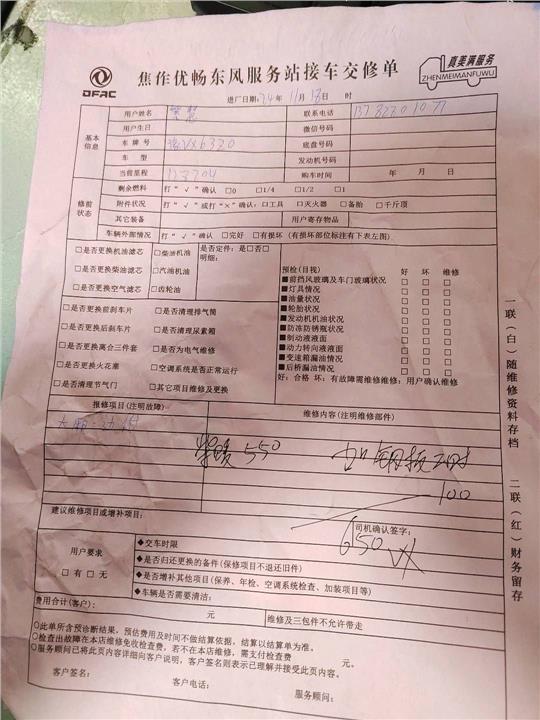 DFAC
焦作优畅东风服务站接车交修单
真美满服务
ZHENMEIMANFUWU
进厂日期:24年 11月 18日 时
用户姓名 联系电话
基本信息
用户生日 微信号码
车牌号 底盘号码
车型 发动机号码
当前里程 购车时间 年 月 日
修前状态
剩余燃料 打“√”确认 □0 □1/4 □1/2 □1
附件状况 打“√”或打“×”确认:□工具 □灭火器 □备胎 □千斤顶
其它装备 用户寄存物品
车辆外部情况 打“√”确认 □完好 □有损坏(有损坏部位标注有下表左图)
□是否更换机油滤芯 □柴油机油 是否定件:是□否□
明细:
□是否更换柴油滤芯 □汽油机油
□是否更换空气滤芯 □齿轮油
□是否更换前刹车片 □是否清理排气筒
□是否更换后刹车片 □是否清理尿素箱
□是否更换离合三件套 □是否为电气维修
□是否更换火花塞 □空调系统是否正常运行
□是否清理节气门 □其它项目维修及更换
预检(目视) 好 坏 维修
■前挡风玻璃及车门玻璃状况 □ □ □
■灯具情况 □ □ □
■油量状况 □ □ □
■轮胎状况 □ □ □
■发动机机油状况 □ □ □
■防冻防锈瓶状况 □ □ □
■制动液液面 □ □ □
■动力转向液液面 □ □ □
■变速箱漏油情况 □ □ □
■后桥漏油情况 □ □ □
好:合格 坏:有故障需维修维修:用户确认维修
报修项目(注明故障) 维修内容(注明维修部件)
550 工时
100
建议维修项目或增补项目:
司机确认签字:
650
用户要求
□有□无
◆交车时限
◆是否归还更换的备件(保修项目不退还旧件)
◆是否增补其他项目(保养、年检、空调系统检查、加装项目等)
◆车辆是否需要清洁:
费用合计(客户): 元 维修及三包件不允许带走
○此单所含预诊断结果,预估费用及时间不做结算依据,结算以结算单为准。
○检查出故障在本店维修免收检查费,若不在本店维修,需支付检查费 元。
○服务顾问已将此页内容详细向客户说明,客户签名则表示已理解并接受此页内容。
客户签名: 客户电话: 服务顾问:
一联(白)随维修资料存档
二联(红)财务留存